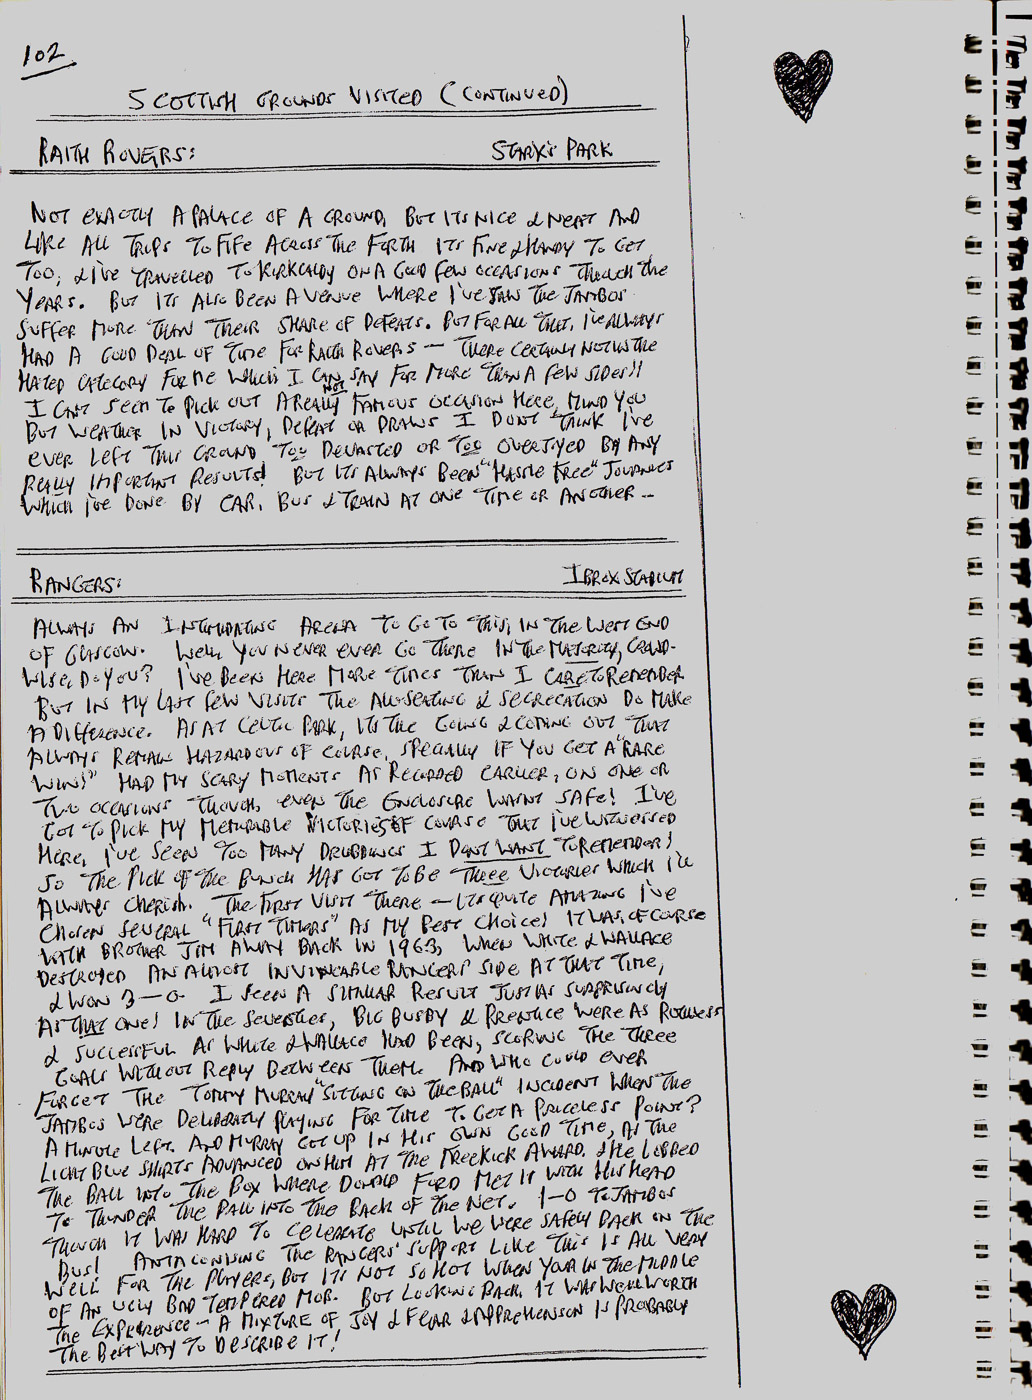 102
SCOTTISH GROUNDS VISITED (CONTINUED)
RAITH ROVERS: STARK'S PARK
NOT EXACTLY A PALACE OF A GROUND, BUT ITS NICE & NEAT AND
LIKE ALL TRIPS TO FIFE ACROSS THE FORTH ITS FINE & HANDY TO GET
TOO, & I'VE TRAVELLED TO KIRKCALDY ON A GOOD FEW OCCASIONS THROUGH THE
YEARS. BUT ITS ALSO BEEN A VENUE WHERE I'VE SAW THE JAMBOS
SUFFER MORE THAN THEIR SHARE OF DEFEATS. BUT FOR ALL THAT, I'VE ALWAYS
HAD A GOOD DEAL OF TIME FOR RAITH ROVERS — THERE CERTAINLY NOT IN THE
HATED CATEGORY FOR ME WHICH I CAN NOT SAY FOR MORE THAN A FEW SIDES!!
I CANT SEEM TO PICK OUT A REALLY FAMOUS OCCASION HERE, MIND YOU
BUT WEATHER IN VICTORY, DEFEAT OR DRAWS I DONT THINK I'VE
EVER LEFT THIS GROUND TOO DEVASTED OR TOO OVERJOYED BY ANY
REALLY IMPORTANT RESULTS! BUT ITS ALWAYS BEEN "HASSLE FREE" JOURNEYS
WHICH I'VE DONE BY CAR, BUS & TRAIN AT ONE TIME OR ANOTHER --
RANGERS: IBROX STADIUM
ALWAYS AN INTIMIDATING ARENA TO GO TO THIS, IN THE WEST END
OF GLASGOW. WELL, YOU NEVER EVER GO THERE IN THE MAJORITY, CROWD-
WISE, DO YOU? I'VE BEEN HERE MORE TIMES THAN I CARE TO REMEMBER
BUT IN MY LAST FEW VISITS THE ALL-SEATING & SEGREGATION DO MAKE
A DIFFERENCE. AS AT CELTIC PARK, ITS THE GOING & COMING OUT THAT
ALWAYS REMAIN HAZARDOUS OF COURSE, SPECIALLY IF YOU GET A "RARE
WIN!" HAD MY SCARY MOMENTS AS RECORDED EARLIER, ON ONE OR
TWO OCCASIONS THOUGH, EVEN THE ENCLOSURE WASNT SAFE! I'VE
GOT TO PICK MY MEMORABLE VICTORIES OF COURSE THAT I'VE WITNESSED
HERE, I'VE SEEN TOO MANY DRUBBINGS I DONT WANT TO REMEMBER!
SO THE PICK OF THE BUNCH HAS GOT TO BE THREE VICTORIES WHICH I'LL
ALWAYS CHERISH. THE FIRST VISIT THERE — ITS QUITE AMAZING I'VE
CHOSEN SEVERAL "FIRST TIMERS" AS MY BEST CHOICE! IT WAS, OF COURSE
WITH BROTHER JIM AWAY BACK IN 1963, WHEN WHITE & WALLACE
DESTROYED AN ALMOST INVINCABLE RANGERS SIDE AT THAT TIME,
& WON 3—0 I SEEN A SIMILAR RESULT JUST AS SURPRISINGLY
AS THAT ONE! IN THE SEVENTIES, BIG BUSBY & PRENTICE WERE AS RUTHLESS
& SUCCESSFUL AS WHITE & WALLACE HAD BEEN, SCORING THE THREE
GOALS WITHOUT REPLY BETWEEN THEM. AND WHO COULD EVER
FORGET THE TOMMY MURRAY "SITTING ON THE BALL" INCIDENT WHEN THE
JAMBOS WERE DELIBERATLY PLAYING FOR TIME TO GET A PRICELESS POINT?
A MINUTE LEFT. AND MURRAY GOT UP IN HIS OWN GOOD TIME, AS THE
LIGHT BLUE SHIRTS ADVANCED ON HIM AT THE FREEKICK AWARD. & HE LOBBED
THE BALL INTO THE BOX WHERE DONALD FORD MET IT WITH HIS HEAD
TO THUNDER THE BALL INTO THE BACK OF THE NET. 1—0 TO JAMBOS
THOUGH IT WAS HARD TO CELEBRATE UNTIL WE WERE SAFELY BACK ON THE
BUS! ANTAGONISING THE RANGERS' SUPPORT LIKE THIS IS ALL VERY
WELL FOR THE PLAYERS, BUT ITS NOT SO HOT WHEN YOUR IN THE MIDDLE
OF AN UGLY BAD TEMPERED MOB. BUT LOOKING BACK, IT WAS WELL WORTH
THE EXPERIENCE — A MIXTURE OF JOY & FEAR & APPREHENSION IS PROBABLY
THE BEST WAY TO DESCRIBE IT!